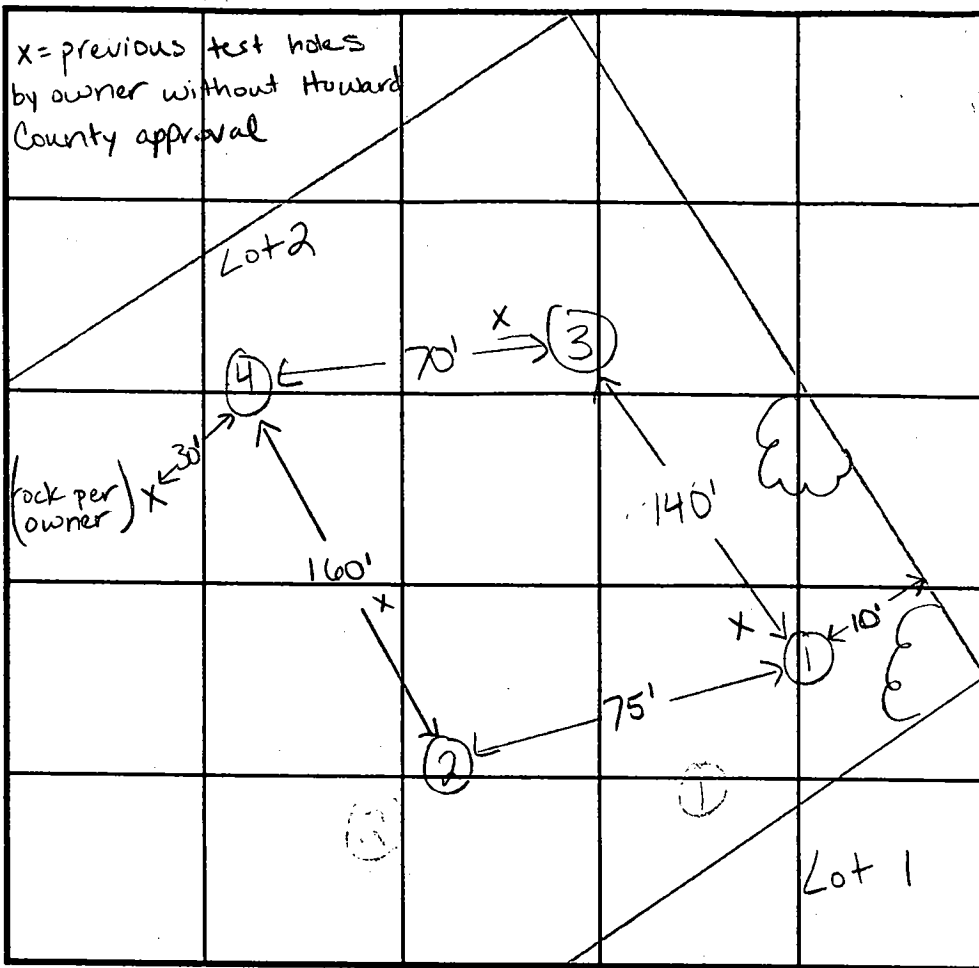 x = previous test holes
by owner without Howard
County approval
Lot 2
x
3
70'
4
30'
(rock per
owner) x
140'
160'
x
x
10'
1
75'
2
1
Lot 1